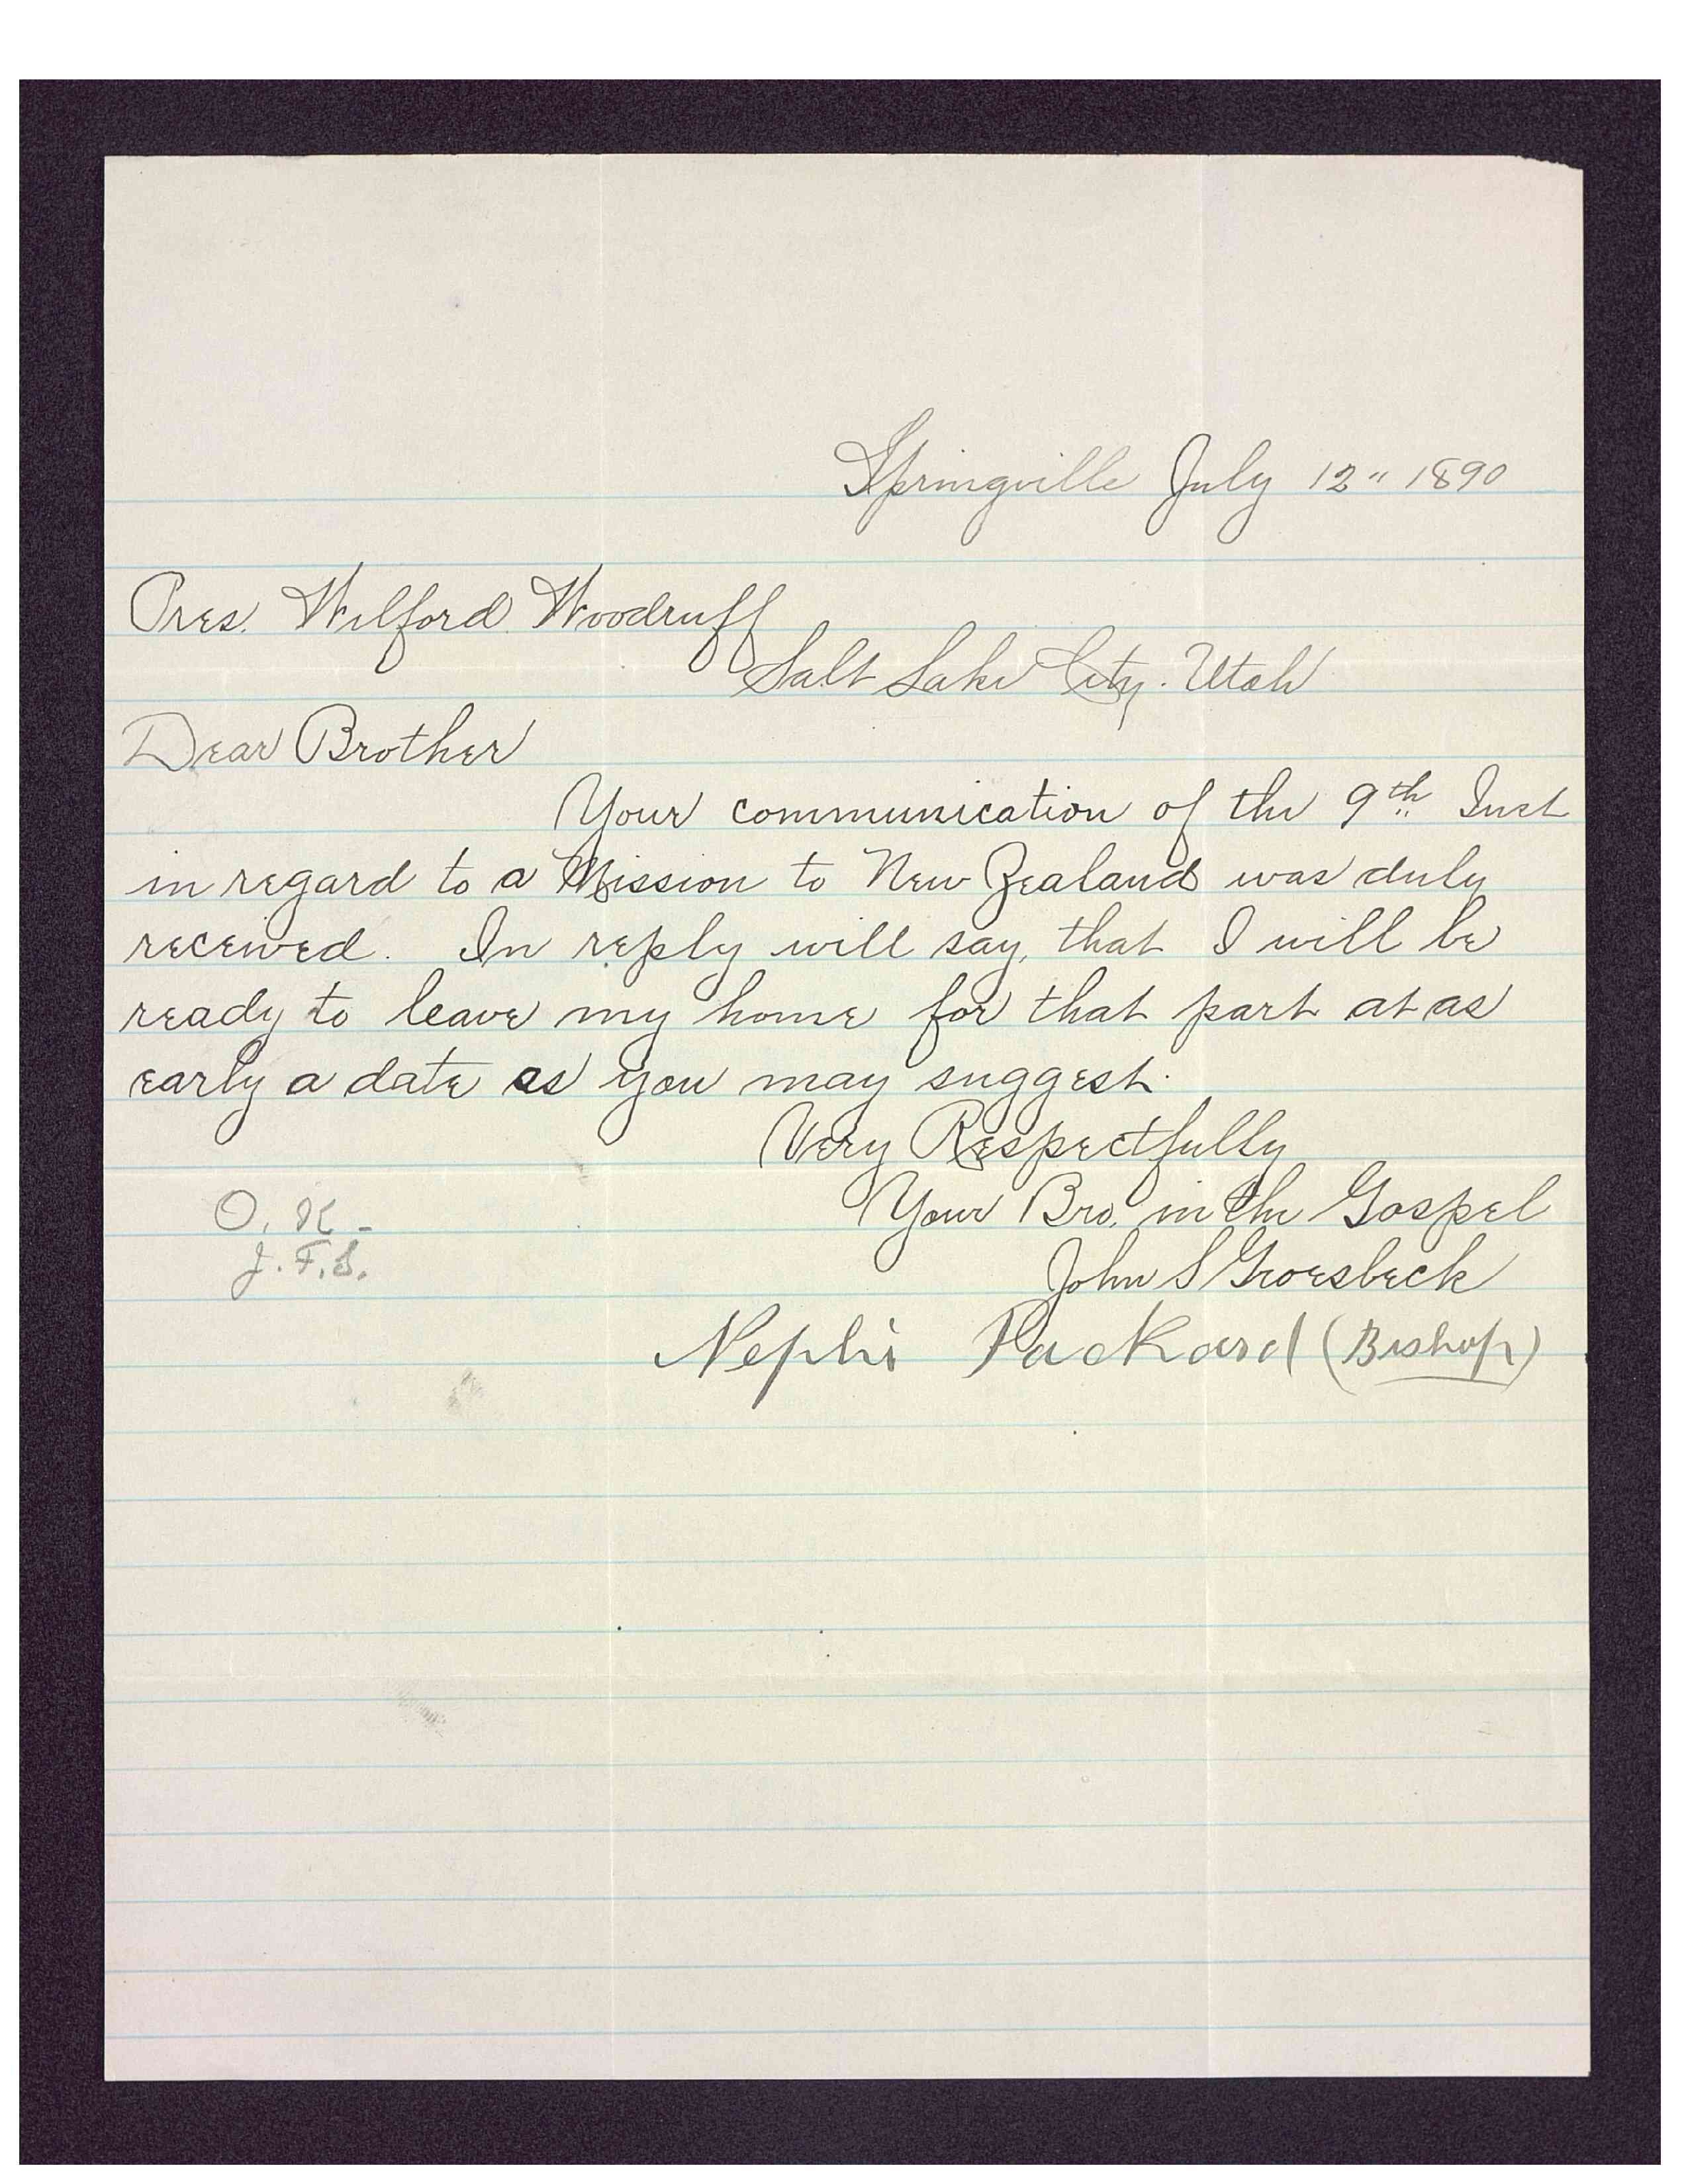 Springville July 12" 1890
Pres. Wilford Woodruff
Salt Lake City. Utah
Dear Brother
Your communication of the 9th Inst
in regard to a Mission to New Zealand was duly
received. In reply will say, that I will be
ready to leave my home for that part at as
early a date as you may suggest.
Very Respectfully
Your Bro. in the Gospel
John S Groesbeck
Nephi Packard (Bishop)
O. K -
J. F. S.